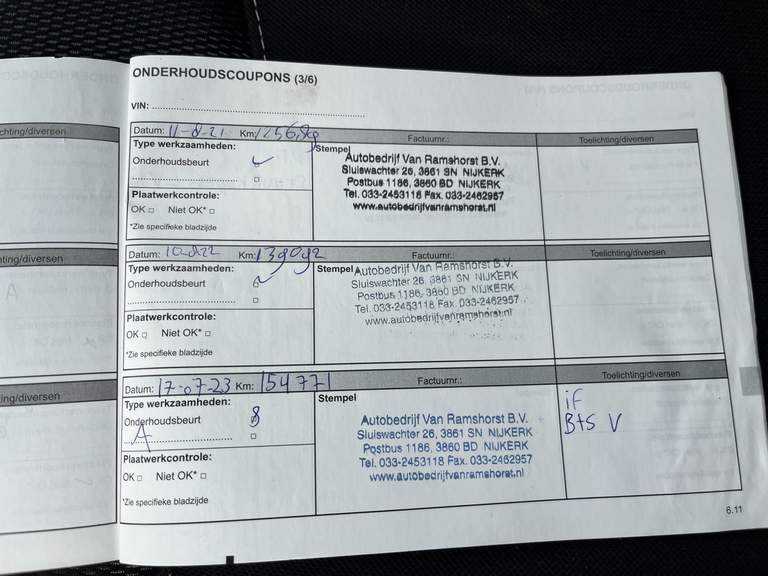 ONDERHOUDSCOUPONS (3/6)
VIN:
chting/diversen
Datum: 11-8-21 Km:
Factuurnr.:
Toelichting/diversen
Type werkzaamheden:
Onderhoudsbeurt
Plaatwerkcontrole:
OK Niet OK*
*Zie specifieke bladzijde
Stempel
Autobedrijf Van Ramshorst B.V.
Sluiswachter 26, 3861 SN NIJKERK
Postbus 1186, 3860 BD NIJKERK
Tel. 033-2453118 Fax. 033-2462957
www.autobedrijfvanramshorst.nl
ting/diversen
A
Datum: 10-8-22 Km: 139092
Factuurnr.:
Toelichting/diversen
Type werkzaamheden:
Onderhoudsbeurt
Plaatwerkcontrole:
OK Niet OK*
*Zie specifieke bladzijde
Stempel
Autobedrijf Van Ramshorst B.V.
Sluiswachter 26, 3861 SN NIJKERK
Postbus 1186, 3860 BD NIJKERK
Tel. 033-2453118 Fax. 033-2462957
www.autobedrijfvanramshorst.nl
ing/diversen
Datum: 17-07-23 Km: 154771
Factuurnr.:
Toelichting/diversen
Type werkzaamheden:
Onderhoudsbeurt
A
Plaatwerkcontrole:
OK Niet OK*
*Zie specifieke bladzijde
Stempel
Autobedrijf Van Ramshorst B.V.
Sluiswachter 26, 3861 SN NIJKERK
Postbus 1186, 3860 BD NIJKERK
Tel. 033-2453118 Fax. 033-2462957
www.autobedrijfvanramshorst.nl
if
BtS V
6.11